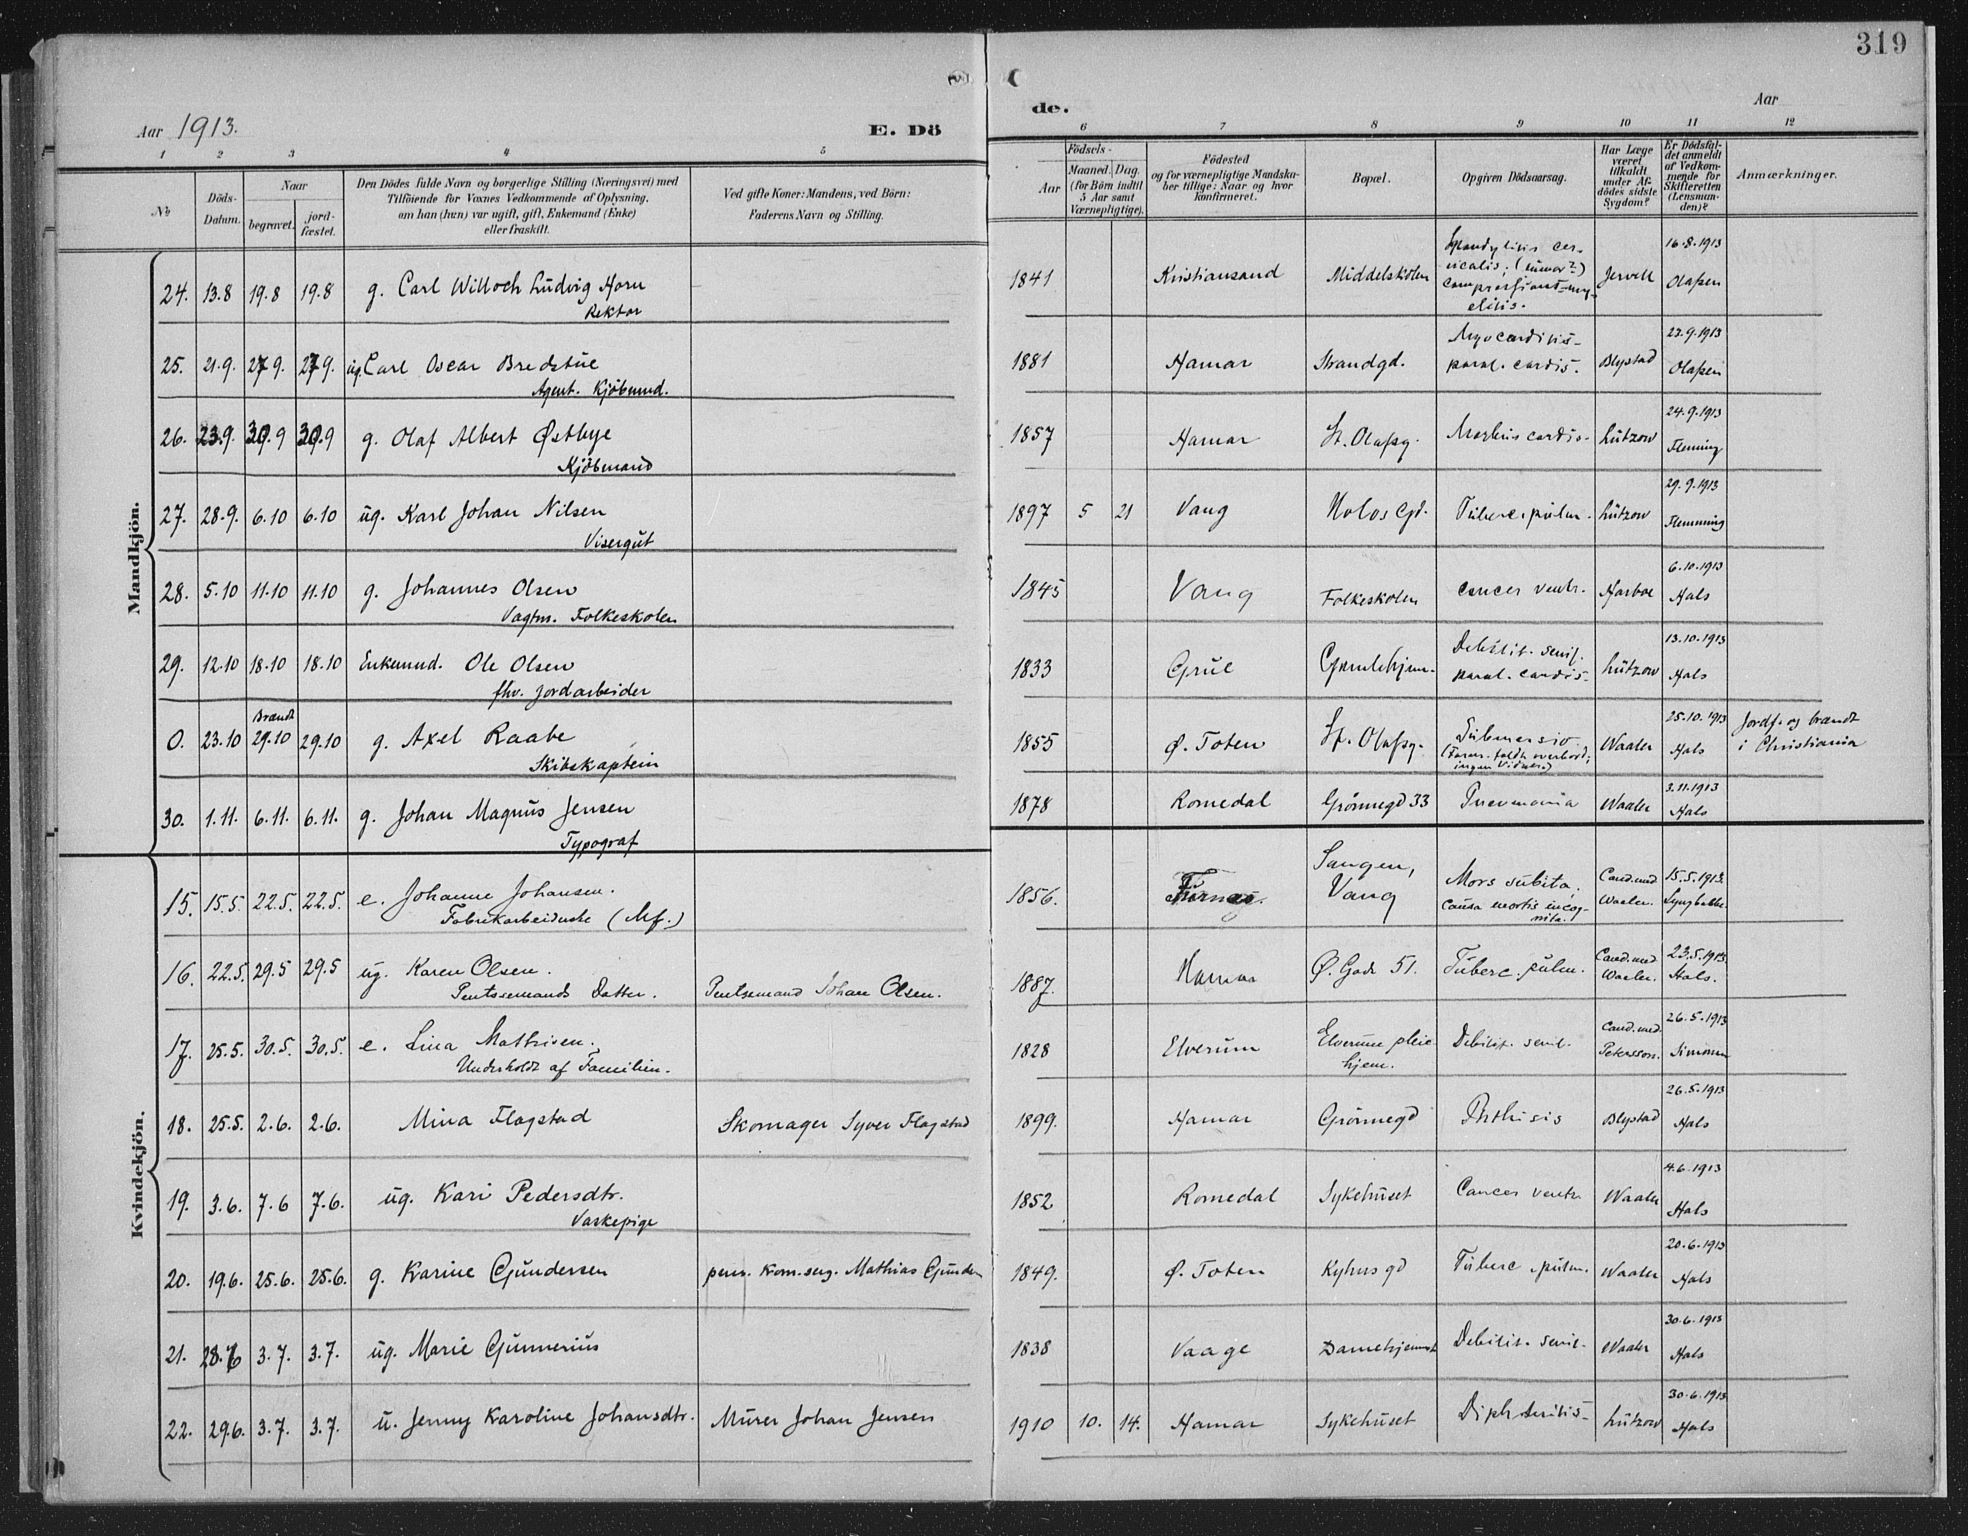 319
Aar 1913.
E. Dö
de.
Aar
1 2 3 4 5
6 7 8 9 10 11 12
№
Döds-
Datum.
Naar
begravet.
jord-
fæstet.
Den Dödes fulde Navn og borgerlige Stilling (Næringsvei) med
Tilföiende for Voxnes Vedkommende af Oplysning,
om han (hun) var ugift, gift, Enkemand (Enke)
eller fraskilt.
Ved gifte Koner: Mandens, ved Börn:
Faderens Navn og Stilling.
Födsels-
Aar
Maaned. Dag.
(for Börn indtil
5 Aar samt
Værnepligtige).
Födested
og for værnepligtige Mandska-
ber tillige: Naar og hvor
konfirmeret.
Bopæl.
Opgiven Dödsaarsag.
Har Læge
været
tilkaldt
under Af-
dödes sidste
Sygdom?
Er Dödsfal-
det anmeldt
af Vedkom-
mende for
Skifteretten
(Lensman-
den)?
Anmærkninger.
Mandkjön.
24. 13.8 19.8 19.8 g. Carl Willoch Ludvig Horn
Rektor
1841 Kristiansand Middelskolen Spondylitis cer-
vicalis; (tumor?)
compressions-my-
elitis. Jervell 16.8.1913
Olafsen
25. 21.9. 27.9. 27.9. ug. Carl Oscar Bredstue
Agent. Kjöbmnd.
1881 Hamar Strandgd. Myocarditis-
paral. cordis. Blystad 22.9.1913
Olafsen
26. 23.9. 30.9 30.9 g. Olaf Albert Østbye
Kjöbmand
1857 Hamar St. Olafsg. Morbus cordis. Lützow 24.9.1913
Flemming
27. 28.9. 6.10 6.10 ug. Karl Johan Nilsen
Visergut
1897 5 21 Vang Holos Gd. Tuberc. pulm. Lützow 29.9.1913
Flemming
28. 5.10 11.10 11.10 g. Johannes Olsen
Vagtm. Folkeskolen
1845 Vang Folkeskolen Cancer ventr. Harboe 6.10.1913
Hals
29. 12.10 18.10 18.10 Enkemnd. Ole Olsen
fhv. Jordarbeider
1833 Grue Gamlehjem. Debilit. senil.
paral. cordis. Lützow 13.10.1913
Hals
0. 23.10 Brændt
29.10 29.10 g. Axel Raabe
Skibskaptein
1855 Ø. Toten St. Olafsg. Submersio
(Form. faldt overbord;
ingen Vidner) Waaler 25.10.1913
Hals Jordf. og brændt
i Christiania
30. 1.11. 6.11. 6.11. g. Johan Magnus Jensen
Typograf
1878 Romedal Grönnegd 33 Pneumonia Waaler 3.11.1913
Hals
Kvindekjön.
15. 15.5. 22.5. 22.5. e. Johanne Johansen.
Fabrikarbeiderske (Mf.)
1856. Furnes. Sangen,
Vang Mors subita,
causa mortis incog-
nita. Cand.med
Waaler. 15.5.1913.
Lyngbakke.
16. 22.5. 29.5 29.5 ug. Karen Olsen.
Pentssemands Datter. Pentsemand Johan Olsen.
1887. Hamar Ø. Gade 51. Tuberc. pulm. Cand.med
Waaler. 23.5.1913
Hals.
17. 25.5. 30.5. 30.5. e. Lina Mathisen.
Underholdt af Familien.
1828 Elverum Elverum pleie
hjem. Debilit. senil. Cand.med.
Petersson. 26.5.1913
Simonsen
18. 25.5. 2.6. 2.6. Mina Flagstad Skomager Syver Flagstad
1899. Hamar Grönnegd Phthisis Blystad 26.5.1913
Hals
19. 3.6. 7.6 7.6. ug. Kari Pedersdtr.
Vaskepige
1852 Romedal Sykehuset Cancer ventr. Waaler 4.6.1913
Hals
20. 19.6. 25.6. 25.6. g. Karine Gundersen pens. kom.serg. Mathias Gunder
1849. Ø. Toten Kyhusgd Tuberc. pulm. Waaler 20.6.1913
Hals
21. 28.6 3.7. 3.7. ug. Marie Gunnerius
1838 Vaage Damehjemmet Debilit. senil. Waaler 30.6.1913
Hals
22. 29.6. 3.7. 3.7. u. Jenny Karoline Johansdtr. Murer Johan Jensen
1910 10. 14. Hamar Sykehuset Diphteritis. Lützow 30.6.1913
Hals